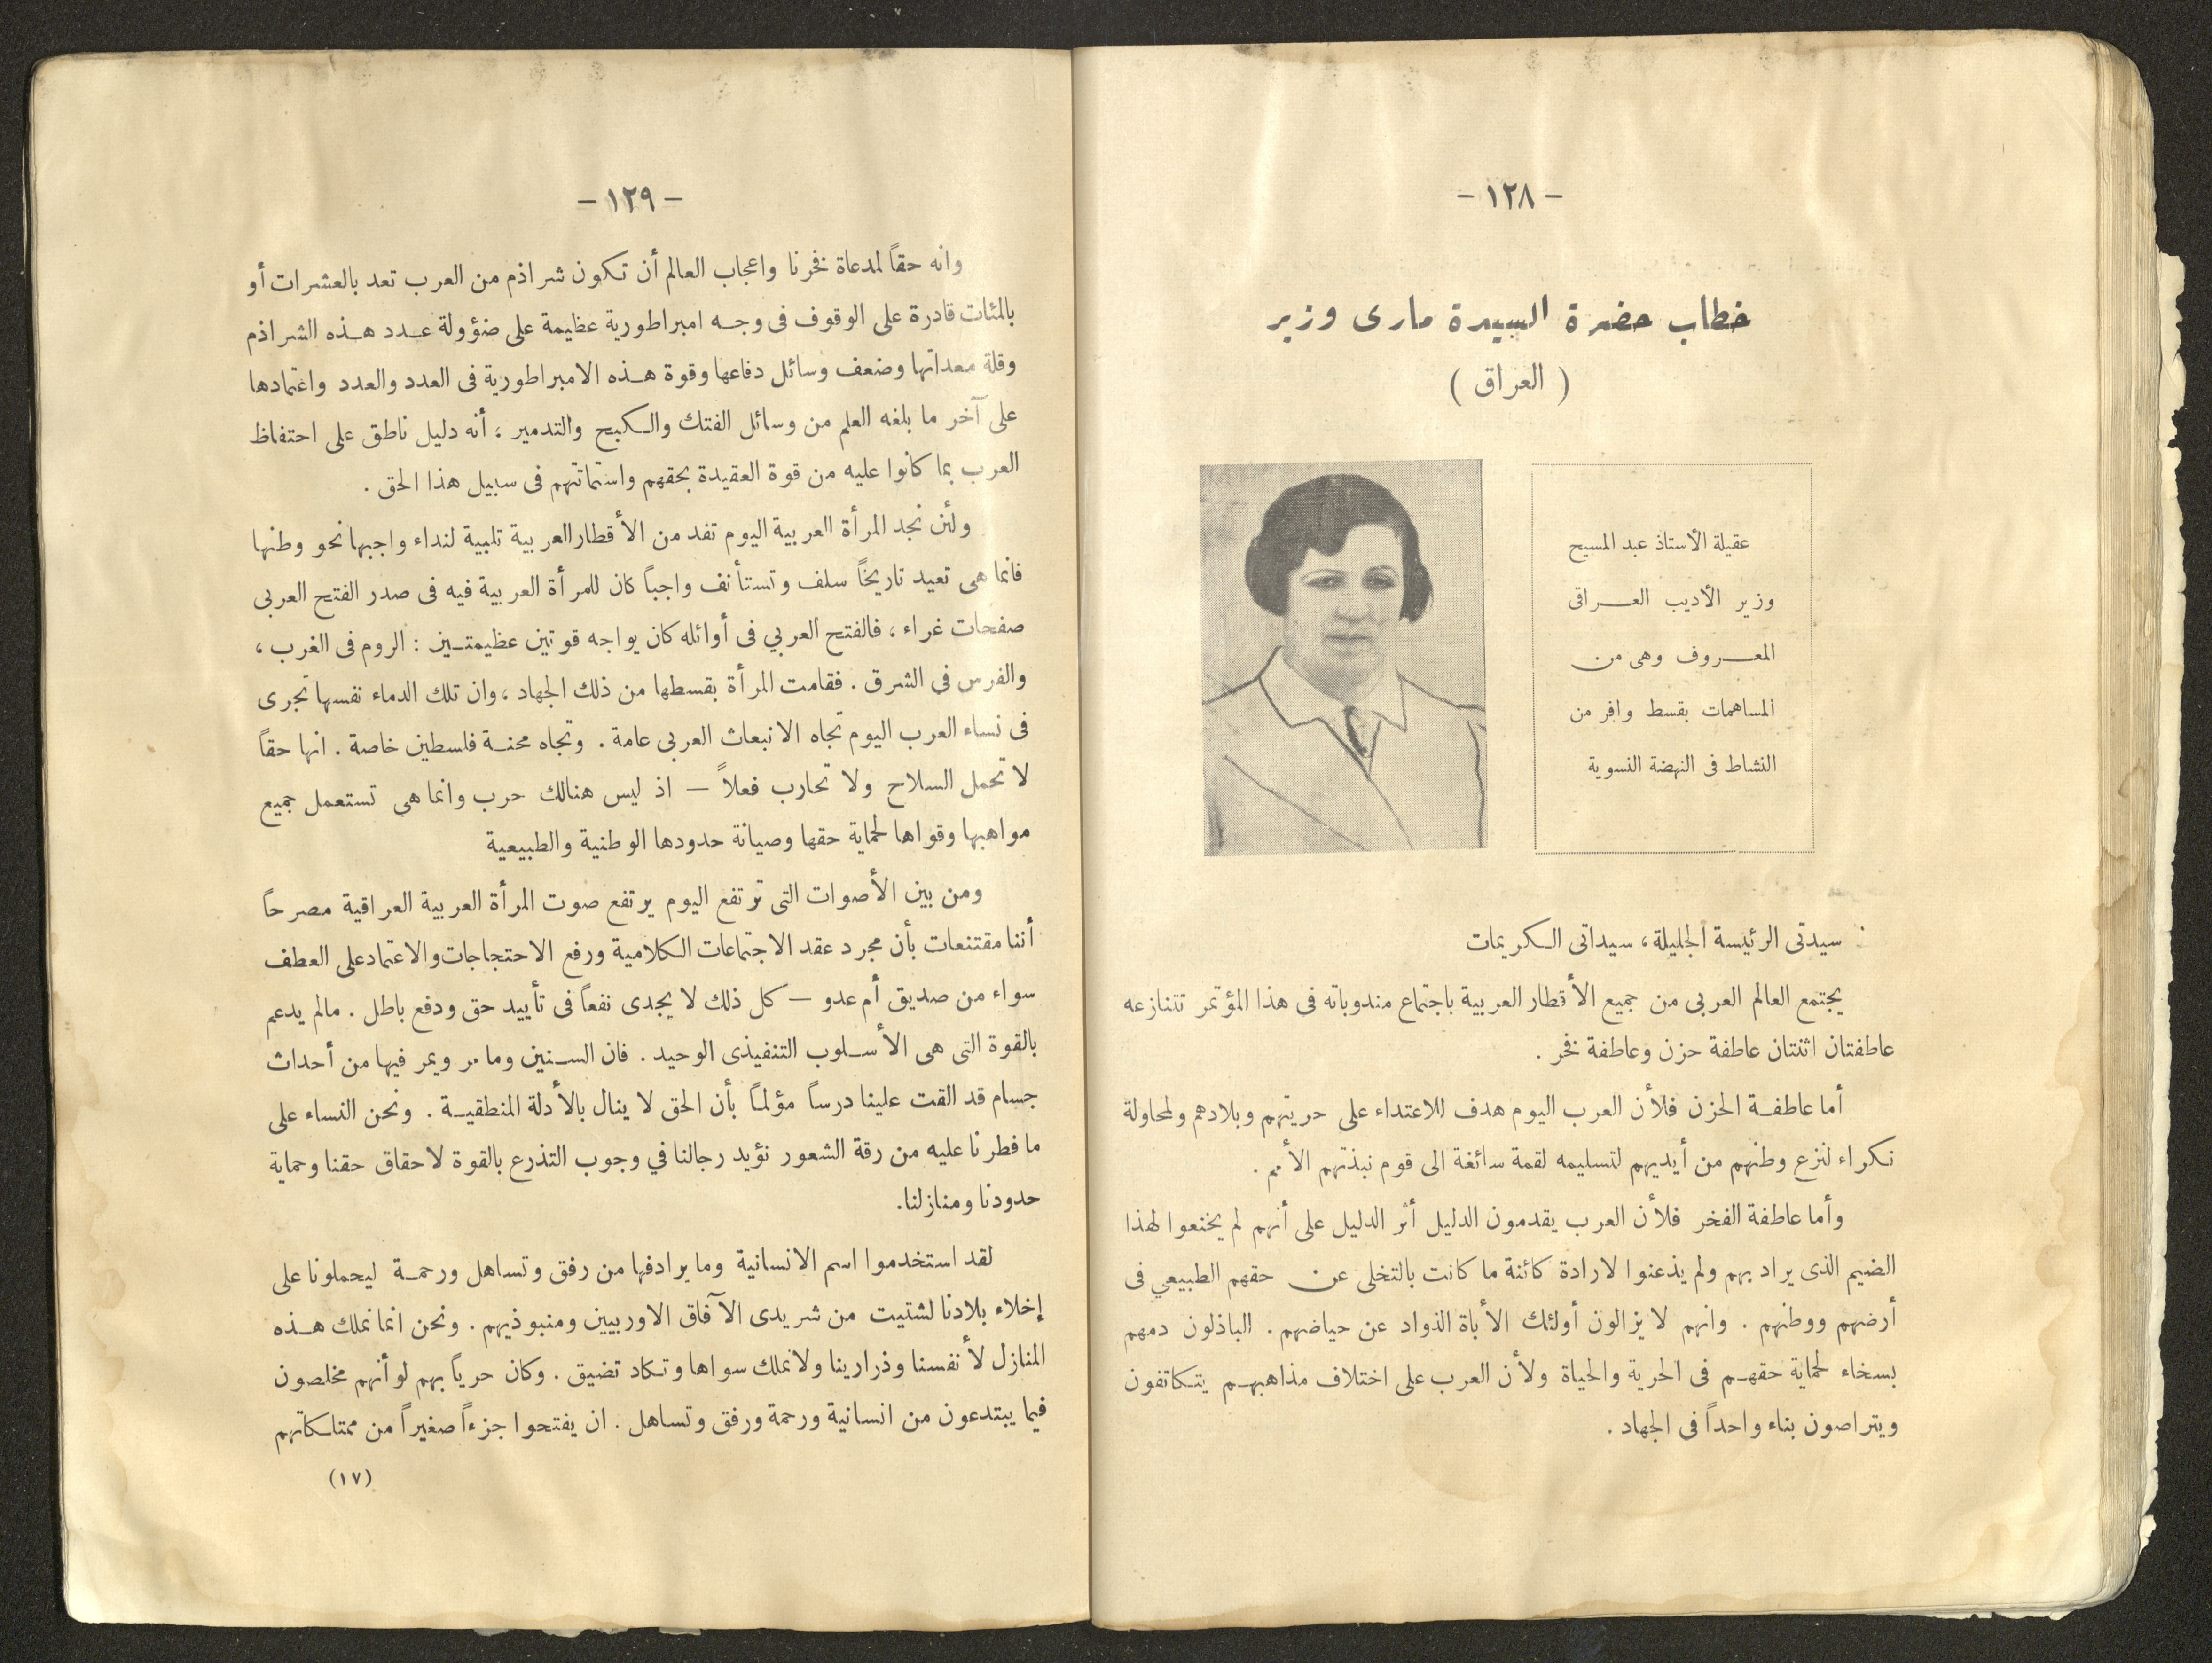 - ١٢٨ -
خطاب حضرة السيدة مارى وزير
( العراق )
عقيلة الأستاذ عبد المسيح
وزير الأديب العـــراقى
المعـــروف وهى من
المساهمات بقسط وافر من
النشاط فى النهضة النسوية
سيدتى الرئيسة الجليلة، سيداتى الكريمات
يجتمع العالم العربى من جميع الأقطار العربية باجتماع مندوباته فى هذا المؤتمر تتنازعه
عاطفتان اثنتان عاطفة حزن وعاطفة فخر .
أما عاطفة الحزن فلأن العرب اليوم هدف للاعتداء على حريتهم وبلادهم ولمحاولة
نكراء لنزع وطنهم من أيديهم لتسليمه لقمة سائغة الى قوم نبذتهم الأمم .
وأما عاطفة الفخر فلأن العرب يقدمون الدليل أثر الدليل على أنهم لم يخنعوا لهذا
الضيم الذى يراد بهم ولم يذعنوا لارادة كائنة ما كانت بالتخلى عن حقهم الطبيعي فى
أرضهم ووطنهم . وانهم لا يزالون أولئك الأباة الذواد عن حياضهم . الباذلون دمهم
بسخاء لحماية حقهم فى الحرية والحياة ولأن العرب على اختلاف مذاهبهم يتكاتفون
ويتراصون بناء واحداً فى الجهاد .
- ١٢٩ -
وانه حقاً لمدعاة فخرنا واعجاب العالم أن تكون شراذم من العرب تعد بالعشرات أو
بالمئات قادرة على الوقوف فى وجه امبراطورية عظيمة على ضؤولة عدد هذه الشراذم
وقلة معداتها وضعف وسائل دفاعها وقوة هذه الامبراطورية فى العدد والعدد واعتمادها
على آخر ما بلغه العلم من وسائل الفتك والكبح والتدمير ، أنه دليل ناطق على احتفاظ
العرب بما كانوا عليه من قوة العقيدة بحقهم واستماتتهم فى سبيل هذا الحق .
ولئن نجد المرأة العربية اليوم تفد من الأقطار العربية تلبية لنداء واجبها نحو وطنها
فانما هى تعيد تاريخاً سلف وتستأنف واجباً كان للمرأة العربية فيه فى صدر الفتح العربى
صفحات غراء ، فالفتح العربي فى أوائله كان يواجه قوتين عظيمتين : الروم فى الغرب ،
والفرس في الشرق . فقامت المرأة بقسطها من ذلك الجهاد ، وان تلك الدماء نفسها تجرى
فى نساء العرب اليوم تجاه الانبعاث العربى عامة . وتجاه محنة فلسطين خاصة . انها حقاً
لا تحمل السلاح ولا تحارب فعلاً — اذ ليس هنالك حرب وانما هى تستعمل جميع
مواهبها وقواها لحماية حقها وصيانة حدودها الوطنية والطبيعية
ومن بين الأصوات التى ترتفع اليوم يرتفع صوت المرأة العربية العراقية مصرحاً
أننا مقتنعات بأن مجرد عقد الاجتماعات الكلامية ورفع الاحتجاجات والاعتماد على العطف
سواء من صديق أم عدو — كل ذلك لا يجدى نفعاً فى تأييد حق ودفع باطل . مالم يدعم
بالقوة التى هى الأسلوب التنفيذى الوحيد . فان السنين وما مر ويمر فيها من أحداث
جسام قد القت علينا درساً مؤلماً بأن الحق لا ينال بالأدلة المنطقية . ونحن النساء على
ما فطرنا عليه من رقة الشعور نؤيد رجالنا في وجوب التذرع بالقوة لاحقاق حقنا وحماية
حدودنا ومنازلنا.
لقد استخدموا اسم الانسانية وما يرادفها من رفق وتساهل ورحمة ليحملونا على
إخلاء بلادنا لشتيت من شريدى الآفاق الاوربيين ومنبوذيهم . ونحن انما نملك هذه
المنازل لأنفسنا وذرارينا ولا نملك سواها وتكاد تضيق . وكان حرياً بهم لو أنهم مخلصون
فيما يبتدعون من انسانية ورحمة ورفق وتساهل . ان يفتحوا جزءاً صغيراً من ممتلكاتهم
(١٧)